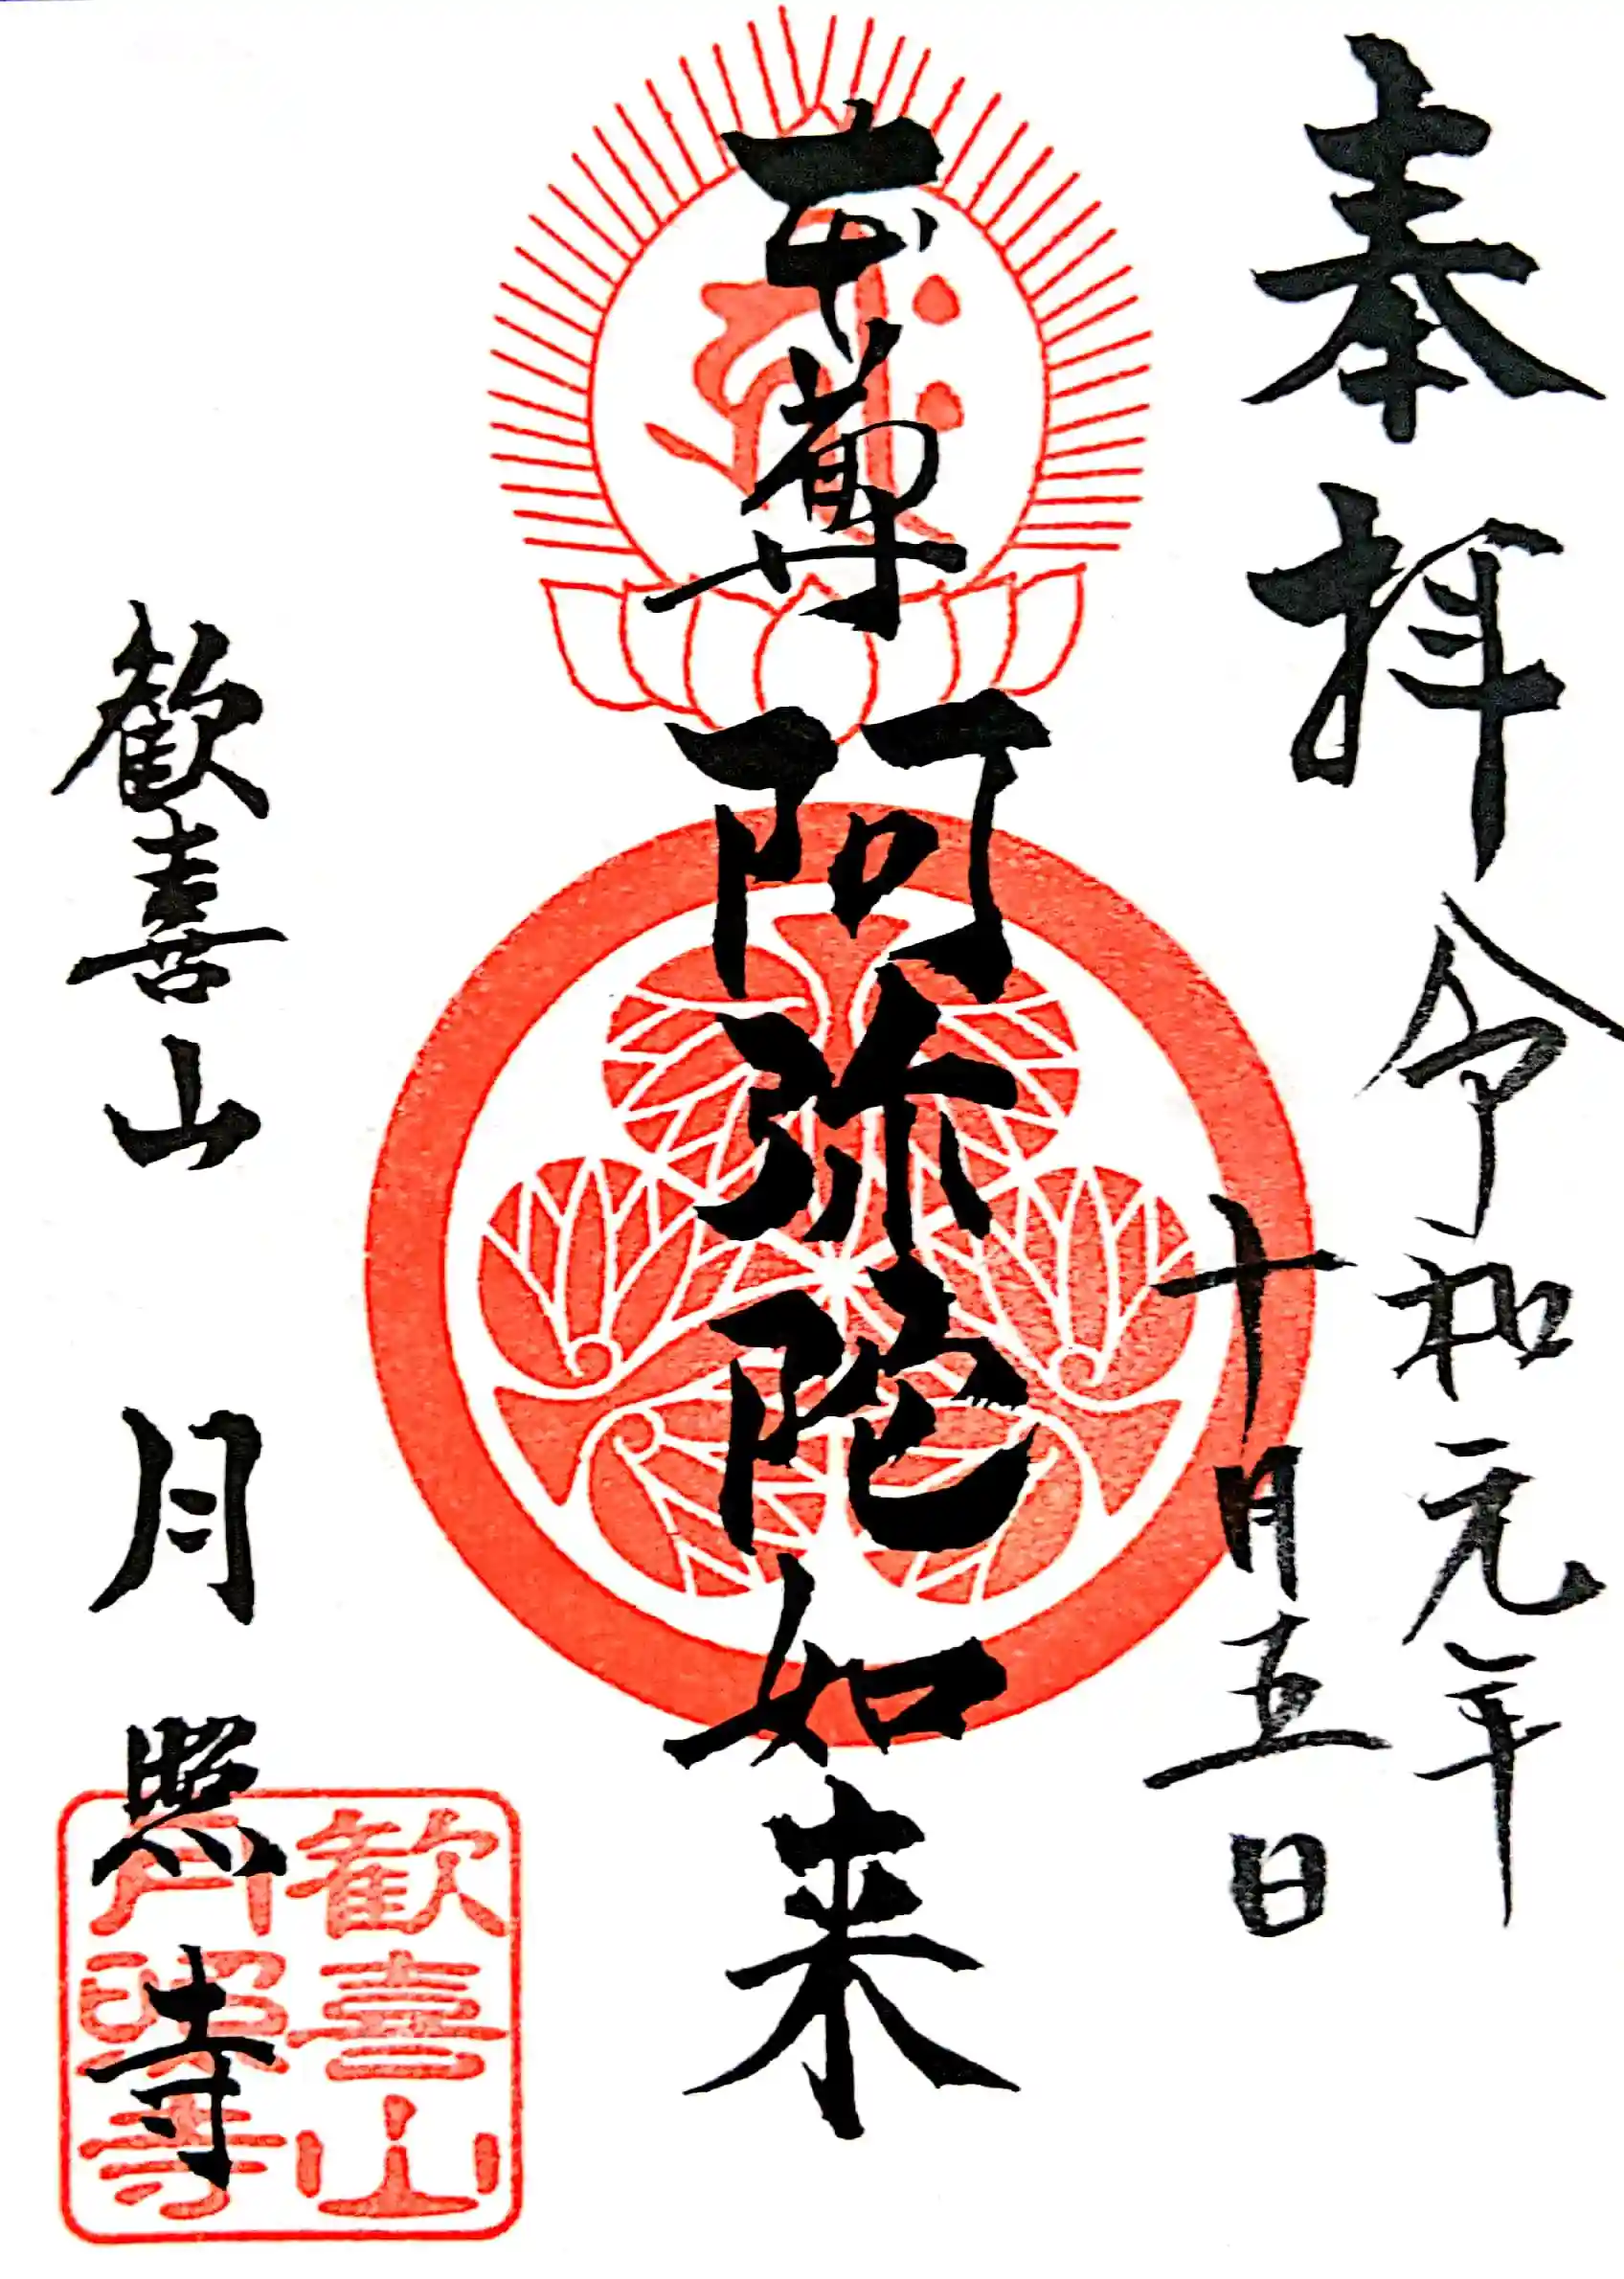 奉拝
令和元年
十月五日
本尊
阿弥陀如来
歓喜山
月照寺
歓喜山
月照寺